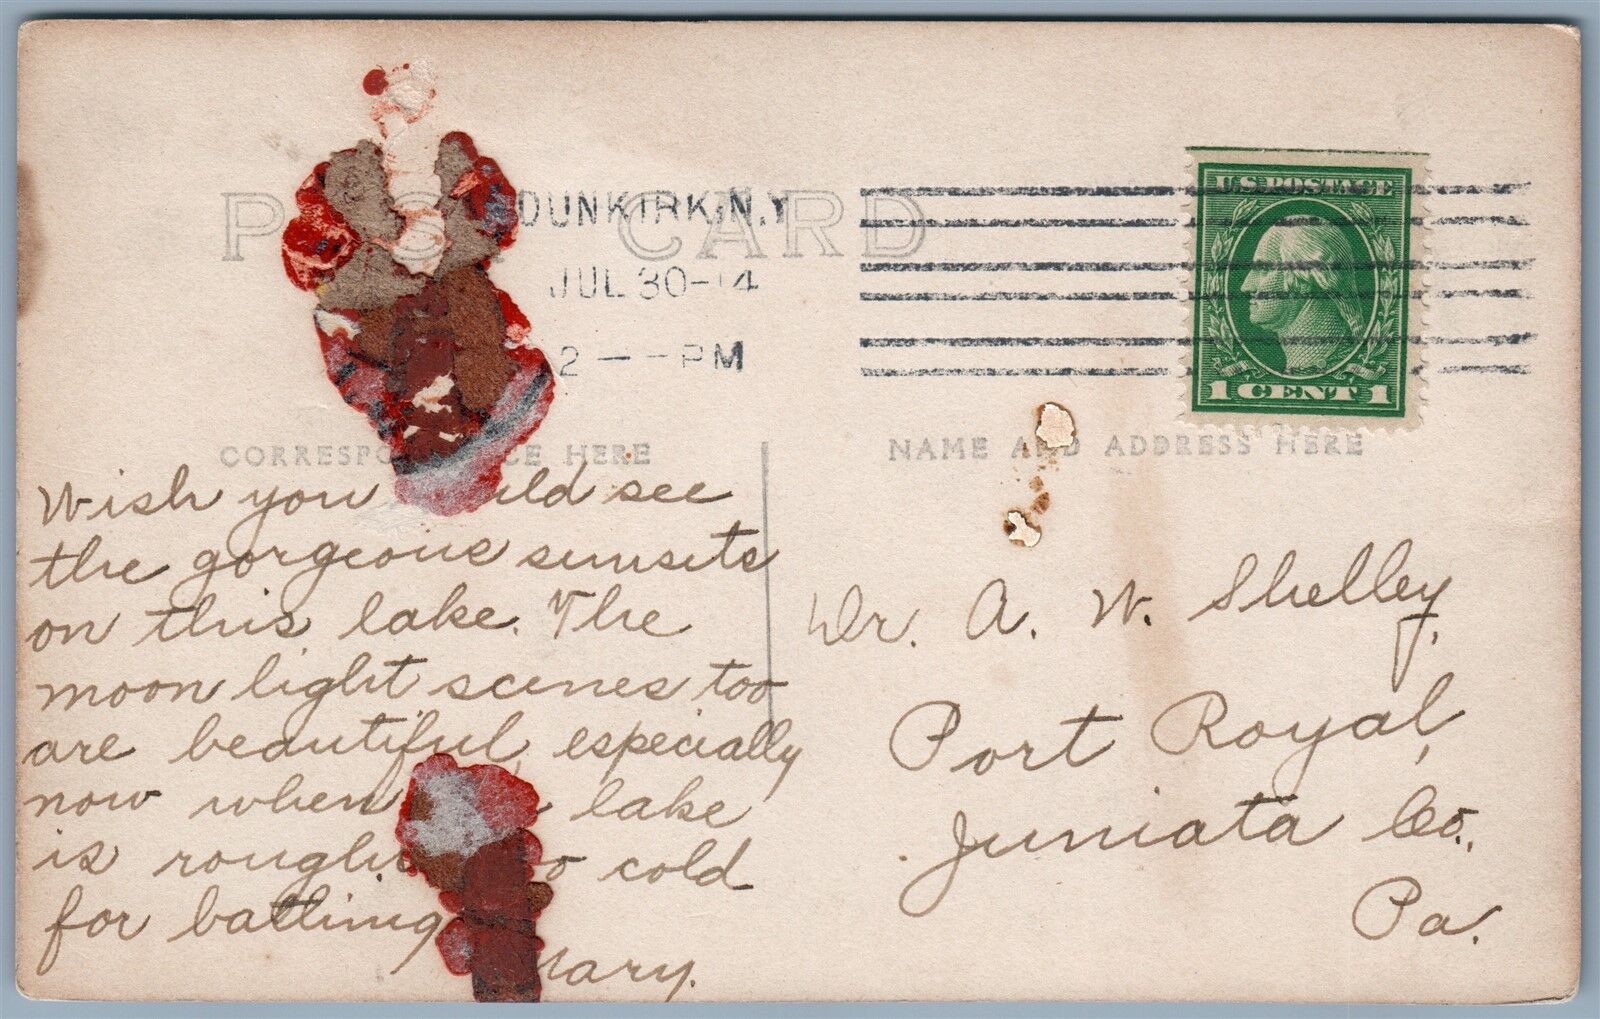 POST CARD
DUNKIRK, N.Y.
JUL 30-14
2 — PM
U.S. POSTAGE
1 CENT 1
CORRESPONDENCE HERE
NAME AND ADDRESS HERE
Wish you could see
the gorgeous sunsets
on this lake. The
moon light scenes too
are beautiful, especially
now when lake
is rough. cold
for bathing
Mary.
Dr. A. W. Shelley,
Port Royal,
Juniata Co.,
Pa.